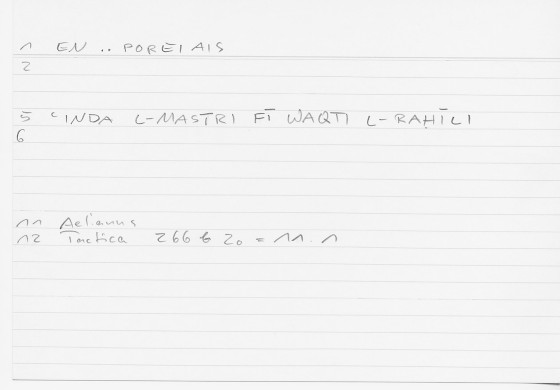 1 EN .. POREIAIS
2
5 ʿINDA L-MASĪRI FĪ WAQTI L-RAḤĪLI
6
11 Aelianus
12 Tactica 266 b 20 = 11.1